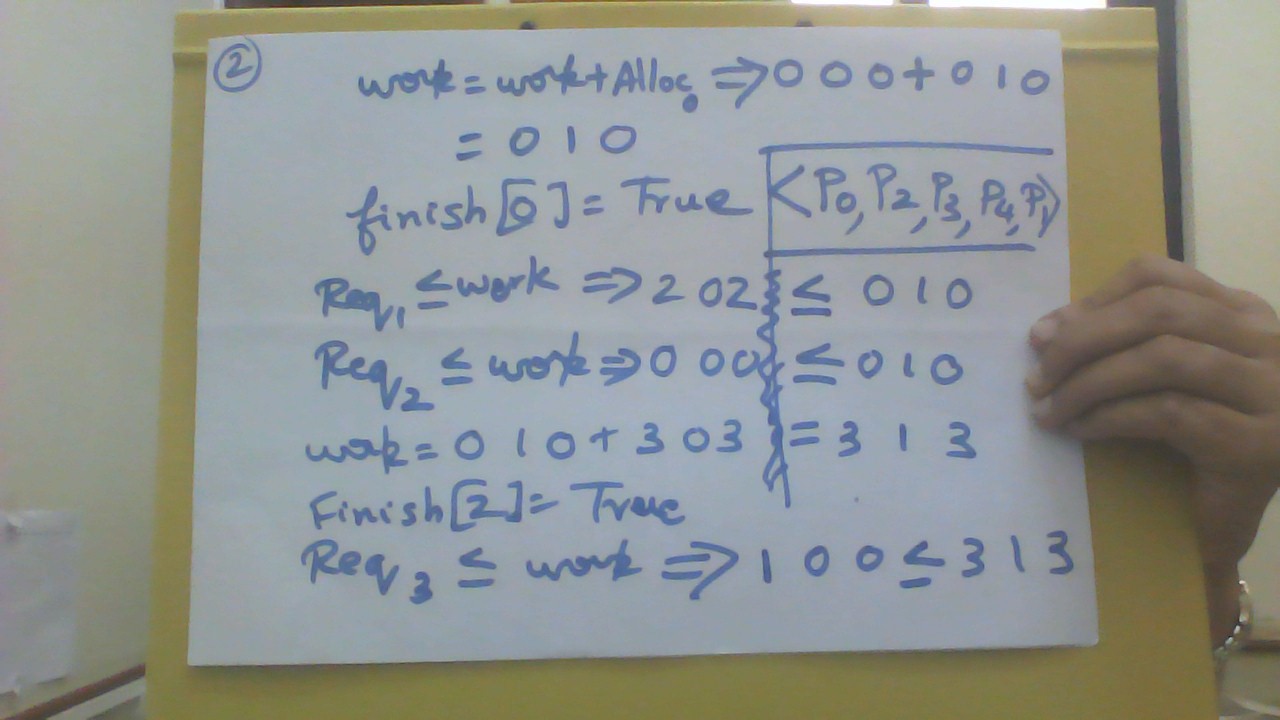 ②
work = work + Alloc₀ ⇒ 0 0 0 + 0 1 0
= 0 1 0
finish[0] = True
<P0, P2, P3, P4, P1>
Req₁ ≤ work ⇒ 2 0 2 ≤ 0 1 0
Req₂ ≤ work ⇒ 0 0 0 ≤ 0 1 0
work = 0 1 0 + 3 0 3 = 3 1 3
Finish[2] = True
Req₃ ≤ work ⇒ 1 0 0 ≤ 3 1 3